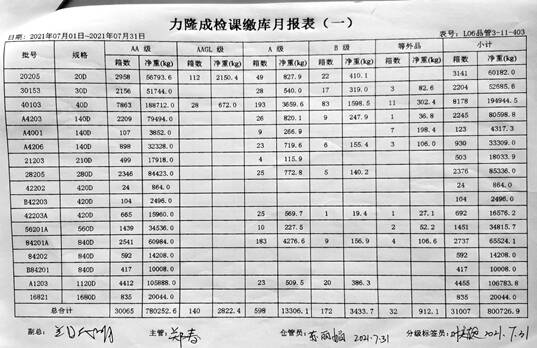 力隆成检课缴库月报表（一）
日期：2021年07月01日~2021年07月31日 表号：L06品管3-11-403
批号 规格 AA 级 AAGL 级 A 级 B 级 等外品 小计
箱数 净重(kg) 箱数 净重(kg) 箱数 净重(kg) 箱数 净重(kg) 箱数 净重(kg) 箱数 净重(kg)
20205 20D 2958 56793.6 112 2150.4 49 827.9 22 410.1 3141 60182.0
30153 30D 2156 51744.0 28 540.0 17 319.0 3 82.6 2204 52685.6
40103 40D 7863 188712.0 28 672.0 193 3659.6 83 1598.5 11 302.4 8178 194944.5
A4203 140D 2209 79494.0 26 820.1 9 247.9 1 36.8 2245 80598.8
A4001 140D 107 3852.0 9 266.9 7 198.4 123 4317.3
A4206 140D 898 32328.0 23 719.6 6 155.4 3 106.0 930 33309.0
21203 210D 499 17918.0 4 115.9 503 18033.9
28205 280D 2346 84423.0 25 772.8 5 140.2 2376 85336.0
42202 420D 24 864.0 24 864.0
B42203 420D 104 2496.0 104 2496.0
42203A 420D 665 15960.0 25 569.7 1 19.4 1 27.1 692 16576.2
56201A 560D 1439 34536.0 10 227.5 2 52.2 1451 34815.7
84201A 840D 2541 60984.0 183 4276.6 9 156.9 4 106.6 2737 65524.1
84202 840D 592 14208.0 592 14208.0
B84201 840D 417 10008.0 417 10008.0
A1203 1120D 4412 105888.0 23 509.5 20 386.3 4455 106783.8
16821 1680D 835 20044.0 835 20044.0
总合计 30065 780252.6 140 2822.4 598 13306.1 172 3433.7 32 912.1 31007 800726.9
副总： 主管： 仓管员： 2021.7.31 分级标签员： 2021.7.31